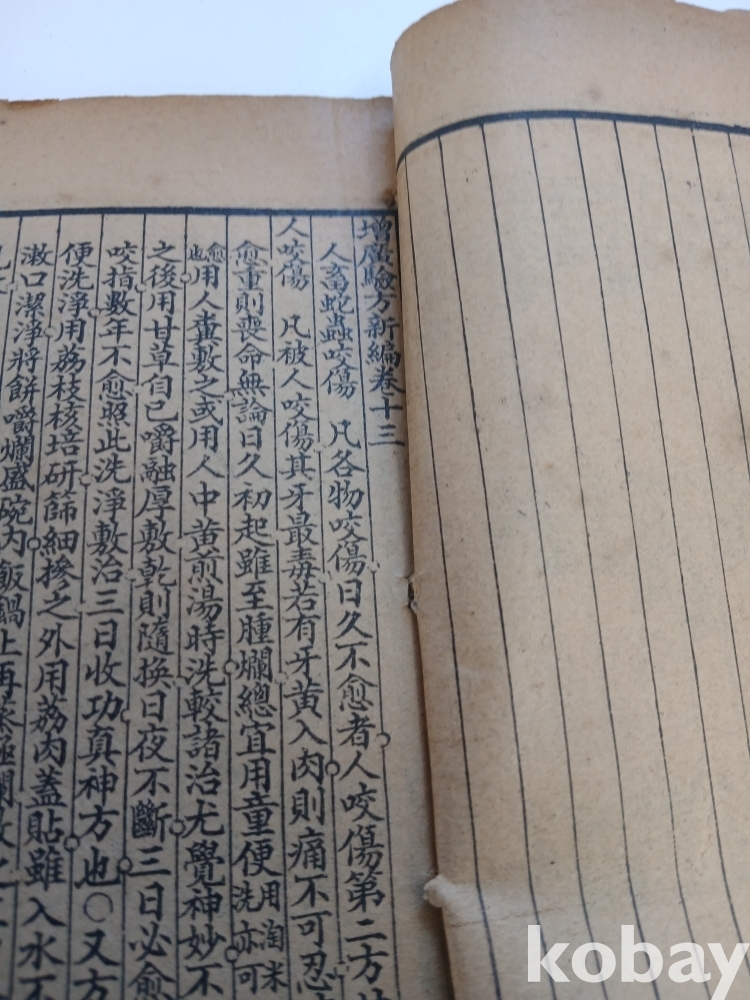 增廣驗方新編卷十三
人畜蛇蟲咬傷 凡各物咬傷日久不愈者人咬傷第二方
人咬傷 凡被人咬傷其牙最毒若有牙黃入肉則痛不可忍
愈重則喪命無論日久初起雖至腫爛總宜用童便洗用淘米亦可
愈也用人糞敷之或用人中黃煎湯時洗較諸治尤覺神妙不
之後用甘草自已嚼融厚敷乾則隨換日夜不斷三日必愈
咬指數年不愈照此洗淨敷治三日收功真神方也○又方
便洗淨用荔枝核焙研篩細摻之外用荔肉蓋貼雖入水不
漱口潔淨將餅嚼爛盛碗內飯鍋上再蒸極爛敷之
kobay